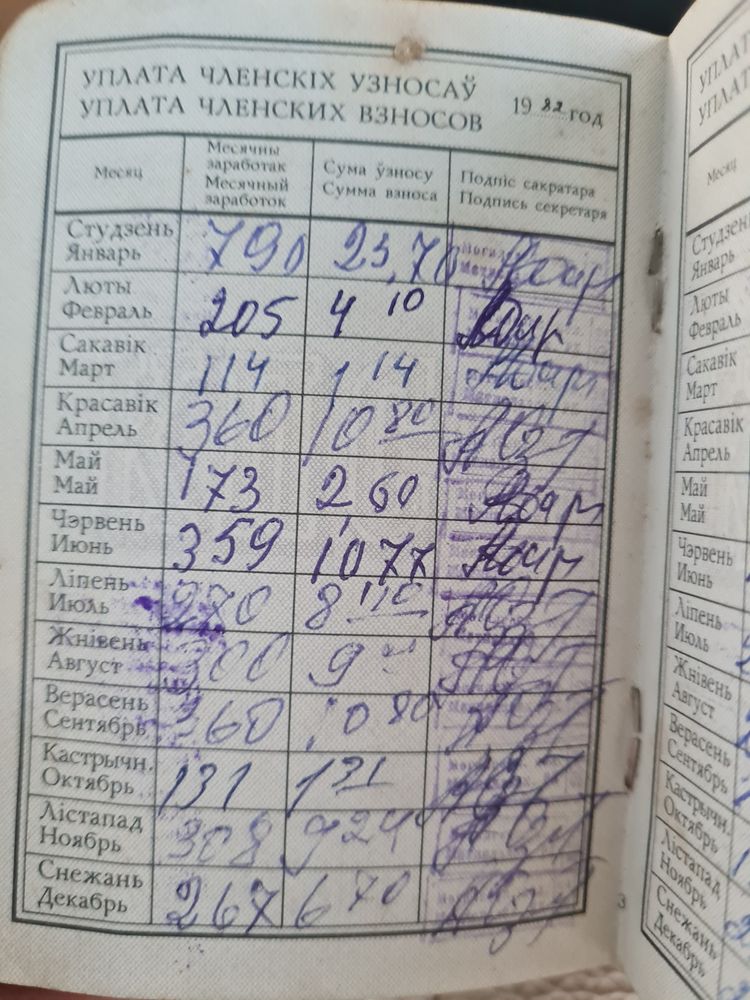 УПЛАТА ЧЛЕНСКІХ УЗНОСАЎ
УПЛАТА ЧЛЕНСКИХ ВЗНОСОВ
19 82 год
Месяц
Месячны
заработак
Месячный
заработок
Сума ўзносу
Сумма взноса
Подпіс сакратара
Подпись секретаря
Студзень
Январь
790 23,70
Люты
Февраль
205 4 10
Сакавік
Март
114 1 14
Красавік
Апрель
360 10 80
Май
Май
173 2,60
Чэрвень
Июнь
359 10 77
Ліпень
Июль
270 8 10
Жнівень
Август
300 9
Верасень
Сентябрь
360 10 80
Кастрычн.
Октябрь
131 1 31
Лістапад
Ноябрь
308 9 24
Снежань
Декабрь
267 6 70
3
УПЛАТ
УПЛАТ
Месяц
Студзень
Январь
Люты
Февраль
Сакавік
Март
Красавік
Апрель
Май
Май
Чэрвень
Июнь
Ліпень
Июль
Жнівень
Август
Верасень
Сентябрь
Кастрычн.
Октябрь
Лістапад
Ноябрь
Снежань
Декабрь